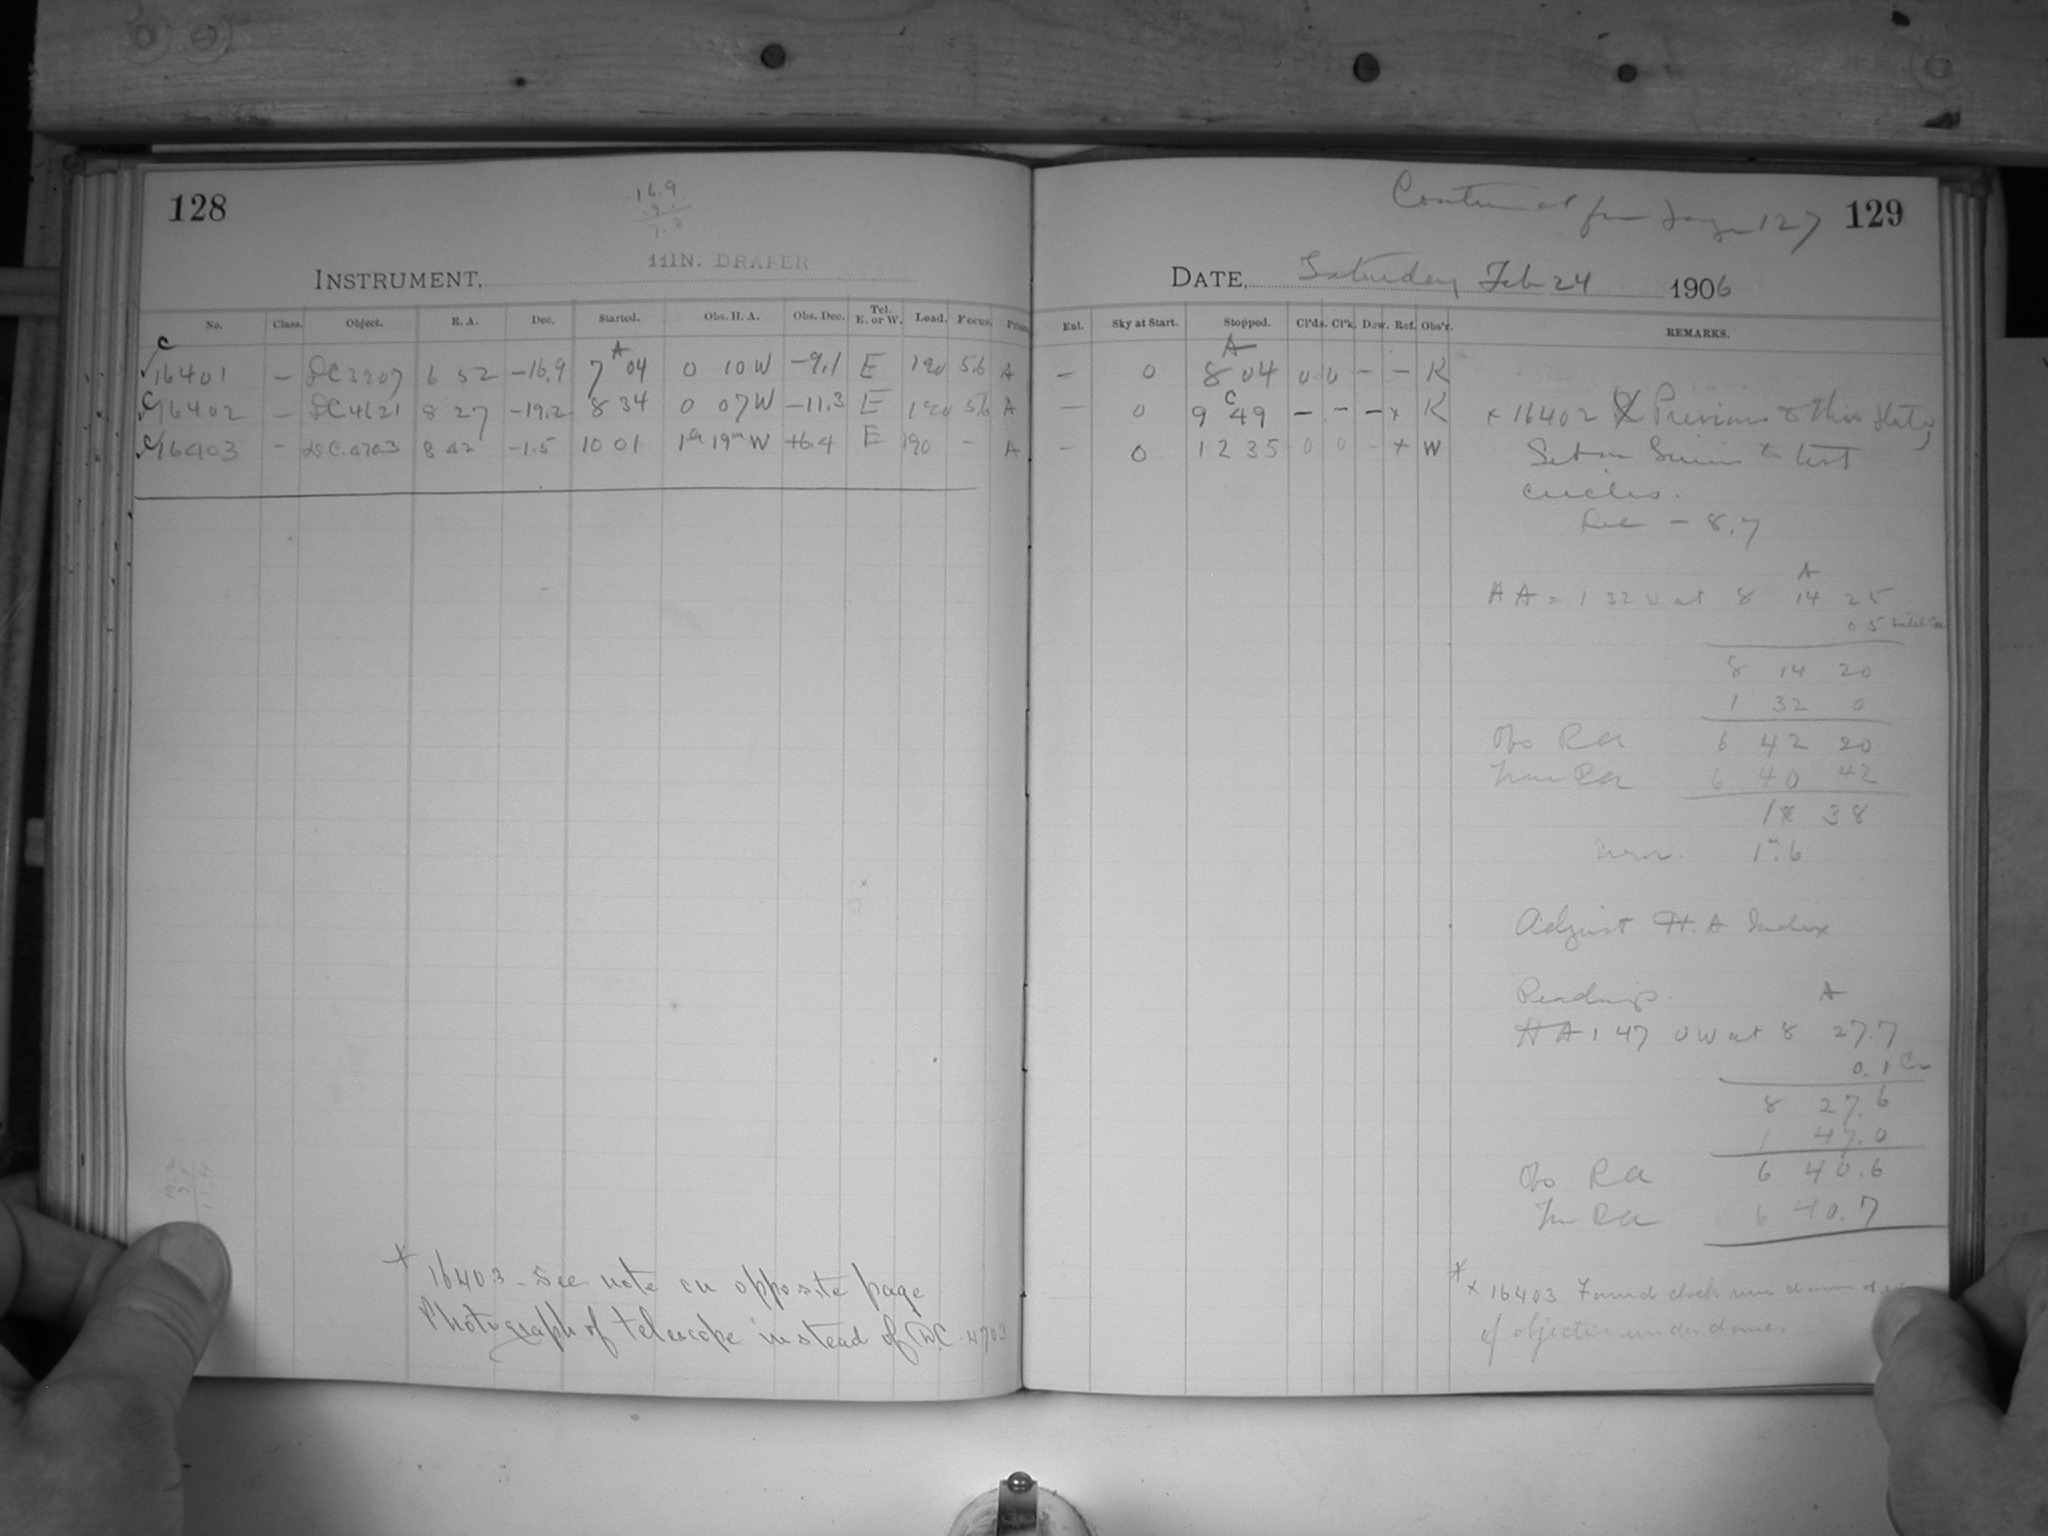 128
16.9
9.1
7.8
INSTRUMENT, 11IN. DRAPER
No. Class. Object. R. A. Dec. Started. Obs. H. A. Obs. Dec. Tel. E. or W. Load. Focus. Prism
C 16401 — DC3907 6 52 -16.9 7 A 04 0 10 W -9.1 E 190 5.6 A
C 16402 — DC4621 8 27 -19.2 8 34 0 07 W -11.3 E 190 5.6 A
C 16403 — DC.4703 8 42 -1.5 10 01 1h 19m W +6.4 E 190 - A
* 16403 - See note on opposite page
Photograph of telescope instead of DC 4703
Continued from page 127
129
DATE, Saturday Feb 24 1906
Ent. Sky at Start. Stopped. Cl'ds. Cl'k. Dew. Ref. Obs'r. REMARKS.
— 0 8 A 04 0 0 - - K
— 0 9 C 49 - - - x K
— 0 12 35 0 0 - x W
x 16402 Previous to this plate,
Set on Sirius to test
circles.
Dec - 8.7
A
H A = 1 32 W at 8 14 25
05
8 14 20
1 32 0
Obs Ra 6 42 20
True Ra 6 40 42
1 38
Error. 1m.6
Adjust H. A Index
Readings. A
H A 1 47 0 W at 8 27.7
0.1
8 27.6
1 47.0
Obs Ra 6 40.6
Tru Ra 6 40.7
* x 16403 Found clock run down &
of objective under dome.